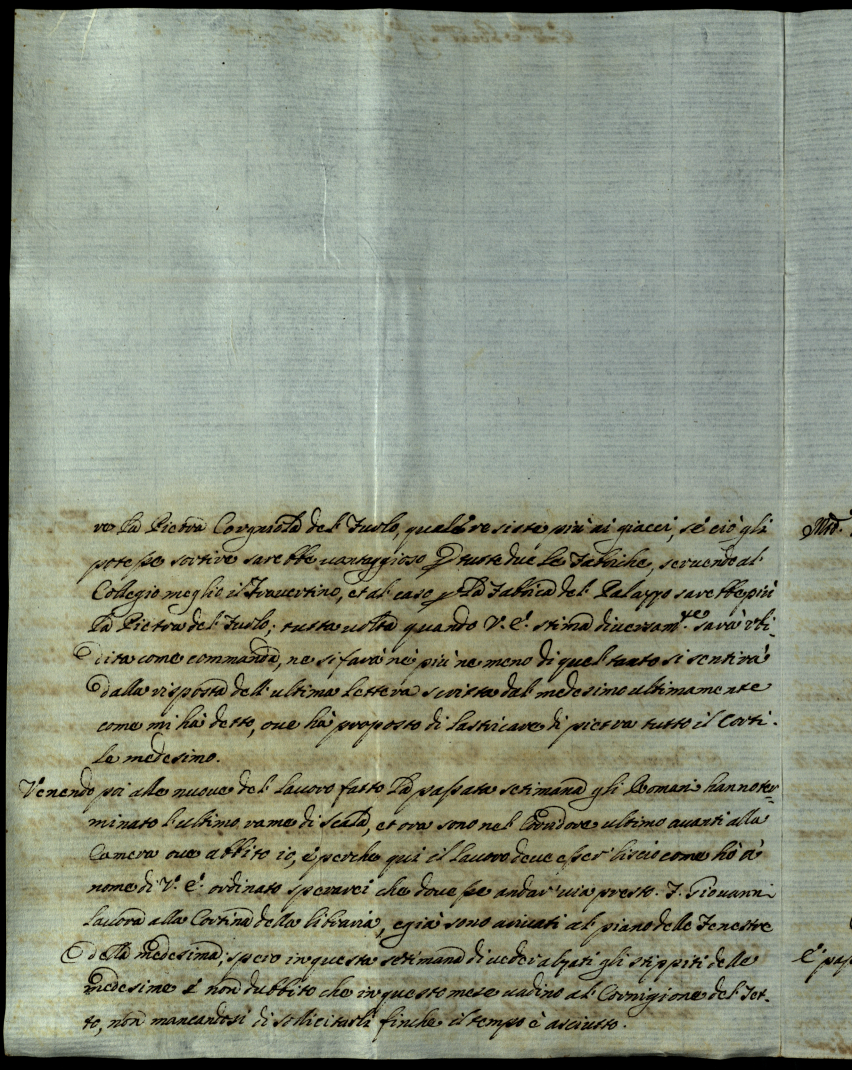 ro la Pietra Corgnola del Fuolo, quale resista più ai giacci, sé ciò gli
potesse sortire sarebbe vantaggioso p tutte due le Fabriche, servendo al
Collegio meglio il Travertino, et al caso p la Fabrica del Palazzo sarebbe più
la Pietra del Fuolo; tutta volta quando V. E. stima diversam.te sarà obi-
dita come commanda, ne si farà né più ne meno di quel tanto si sentirà
dalla risposta dell'ultima lettera scritta dal medesimo ultimamente
come mi hà detto, ove hà proposto di lastricare di pietra tutto il Corti-
le medesimo.
Venendo poi alle nuove del lavoro fatto la passata setimana gli Romani hanno ter-
minato l'ultimo rame di Scala, et ora sono nel Coridore ultimo avanti alla
Camera ove abbito io, é perche qui il lavoro deve esser liscio come hò à
nome di V. E. ordinato sperarei che dovesse andar via presto. F. Giovanni
lavora alla Cortina della libraria, e già sono arivati al piano delle Fenestre
della medesima; spero in questa setimana di veder alzati gli stippiti delle
medesime é non dubbito che in questo mese vadino al Cornigione del Tet-
to, non mancandosi di sollicitarli finche il tempo è asciutto.